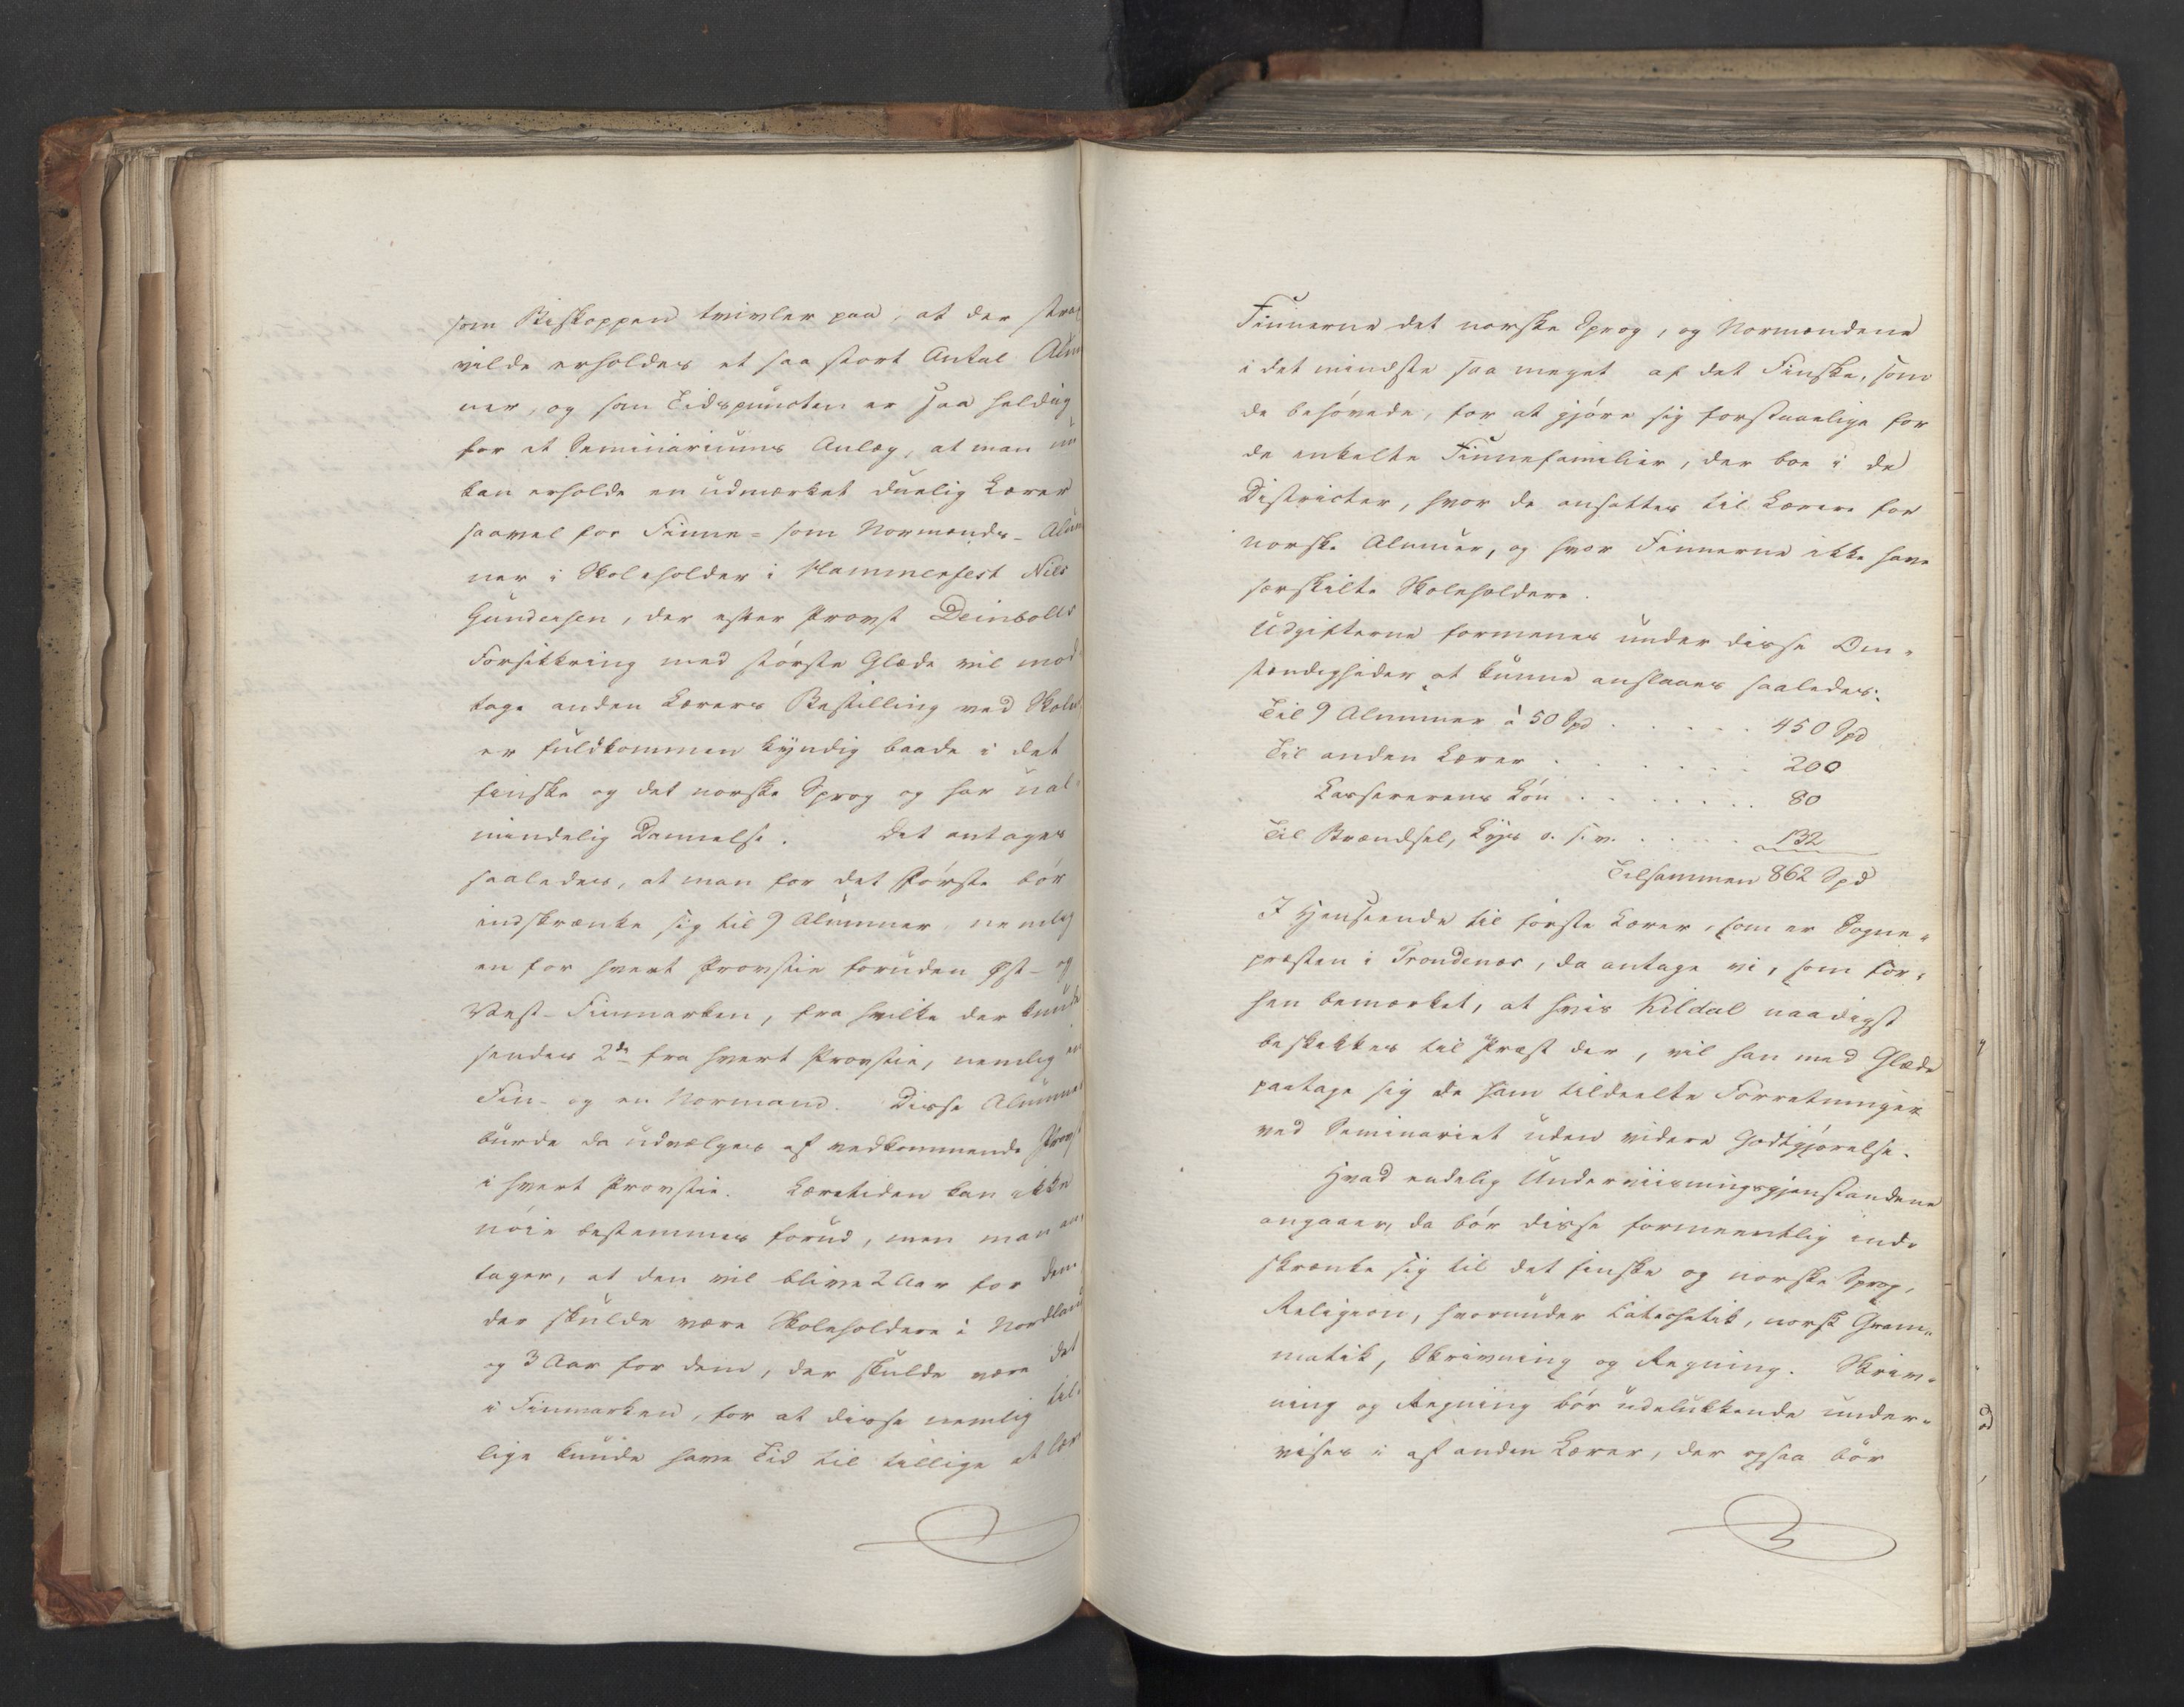 som Biskoppen tvivler paa, at der strax
vilde erholdes et saa stort Antal Alum
ner, og som Tidspuncten er saa heldig
for et Seminariums Anlæg, at man nu
kan erholde en udmærket duelig Lærer
saavel for Finne- som Normands- Alum
ner i Skoleholder i Hammerfest Niels
Gundersen, der efter Provst Deinbolls
Forsikkring med største Glæde vil mod
tage anden Lærers Bestilling ved Skolen,
er fuldkommen kyndig baade i det
finske og det norske Sprog og har ual-
mindelig Dannelse. Det antages
saaledes, at man for det Første bør
indskrænke sig til 9 Alumner nemlig
en for hvert Provstie foruden Øst- og
Vest-Finmarken, fra hvilke der kunde
sendes 2de fra hvert Provstie, nemlig en
Fin- og en Normand. Disse Alumner
burde da udvælges af vedkommende Provst
i hvert Provstie. Læretiden kan ikke
nøie bestemmes forud, men man an-
tager, at den vil blive 2 Aar for dem
der skulde være Skoleholdere i Nordland
og 3 Aar for dem, der skulde være det
i Finmarken, for at disse nemlig til-
lige kunde have Tid til tillige at lære
Finnerne det norske Sprog, og Normændene
i det mindste saa meget af det Finske, som
de behøvede, for at gjøre sig forstaaelige for
de enkelte Finnefamilier, der boe i de
Districter, hvor de ansættes til Lærere for
norske Almuer, og hvor Finnerne ikke have
særskilte Skoleholdere.
Udgifterne formenes under disse Om-
stændigheder at kunne anslaaes saaledes:
Til 9 Alumner à 50 Spd . . . . . 450 Spd
Til anden Lærer . . . . . . 200
Kassererens Løn . . . . . . . 80
Til Brændsel, Lys o. s. v. . . . . 132
Tilsammen 862 Spd
I Henseende til første Lærer, som er Sogne-
præsten i Trondenæs, da antage vi, som for-
hen bemærket, at hvis Kildal naadigst
beskikkes til Præst der, vil han med Glæde
paatage sig de ham tildeelte Forretninger
ved Seminariet uden videre Godtgjørelse.
Hvad endelig Underviisningsgjenstandene
angaaer, da bør disse formeentlig ind-
skrænke sig til det finske og norske Sprog,
Religion, hvorunder Catechetik, norsk Gram-
matik, Skrivning og Regning. Skriv-
ning og Regning bør udelukkende under-
vises i af anden Lærer, der ogsaa bør